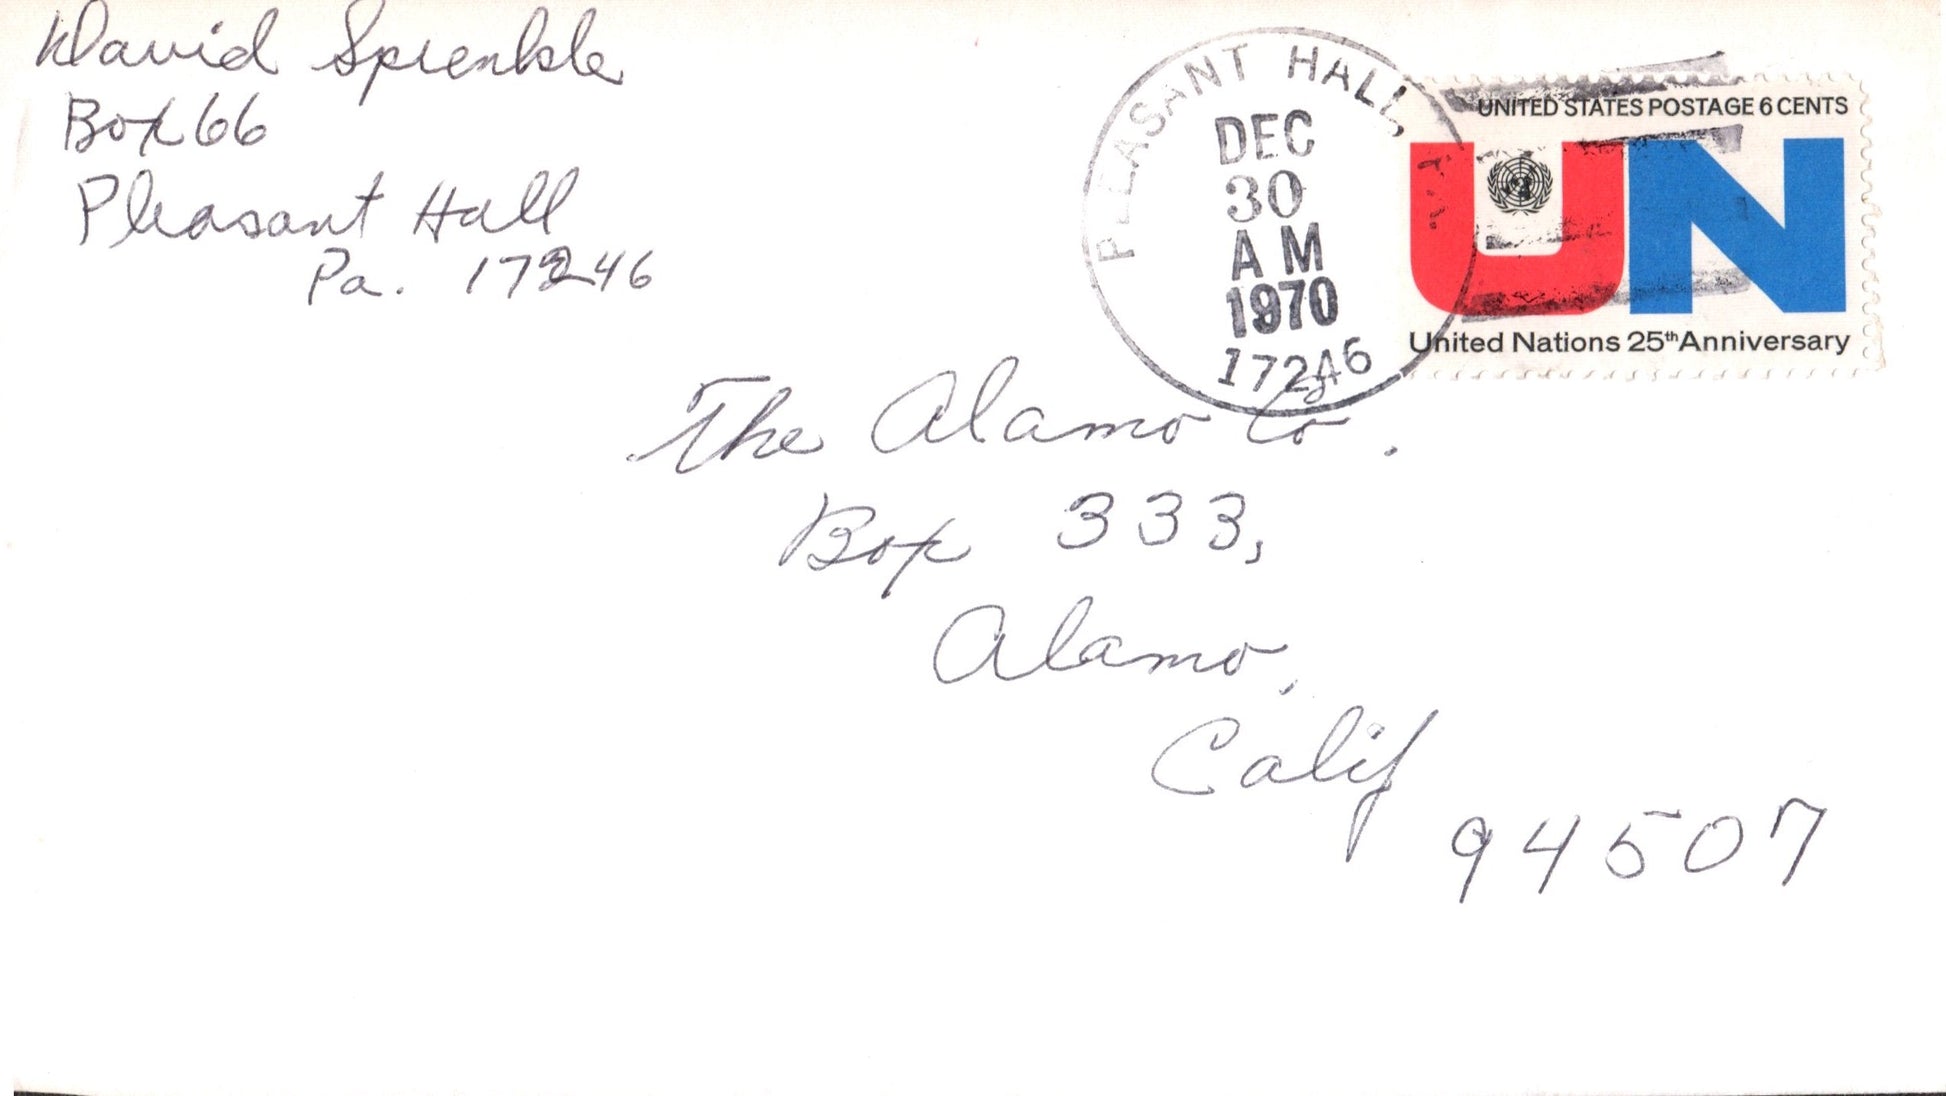 David Sprenkle
Box 66
Pleasant Hall
Pa. 17246
PLEASANT HALL, PA.
DEC
30
AM
1970
17246
UNITED STATES POSTAGE 6 CENTS
UN
United Nations 25th Anniversary
The Alamo Co.
Box 333,
Alamo,
Calif
94507